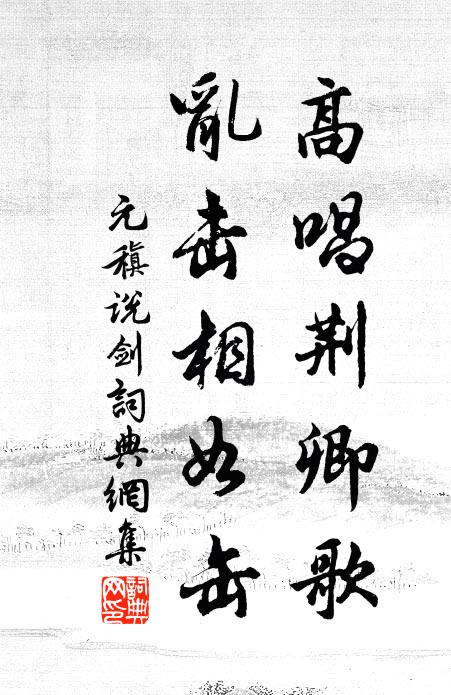 高唱荆卿歌
亂击相如缶
元稹说剑詞典網集
詞典